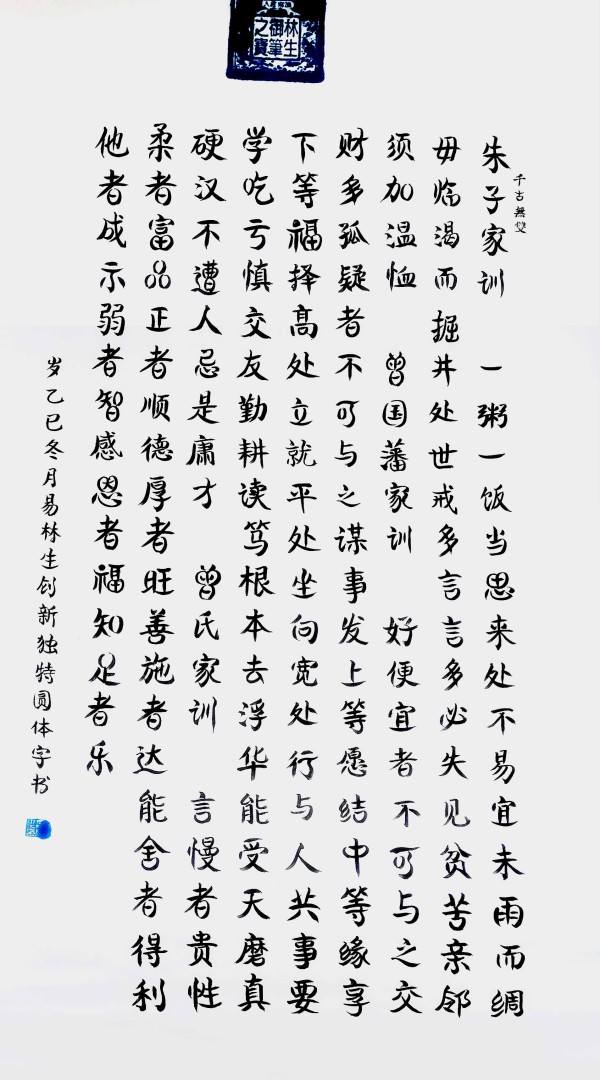 林生御筆之寶
千古無雙
朱子家训 一粥一饭当思来处不易宜未雨而绸
毋临渴而掘井处世戒多言言多必失见贫苦亲邻
须加温恤 曾国藩家训 好便宜者不可与之交
财多孤疑者不可与之谋事发上等愿结中等缘享
下等福择高处立就平处坐向宽处行与人共事要
学吃亏慎交友勤耕读笃根本去浮华能受天磨真
硬汉不遭人忌是庸才 曾氏家训 言慢者贵性
柔者富品正者顺德厚者旺善施者达能舍者得利
他者成示弱者智感恩者福知足者乐
岁乙巳冬月易林生创新独特圆体字书